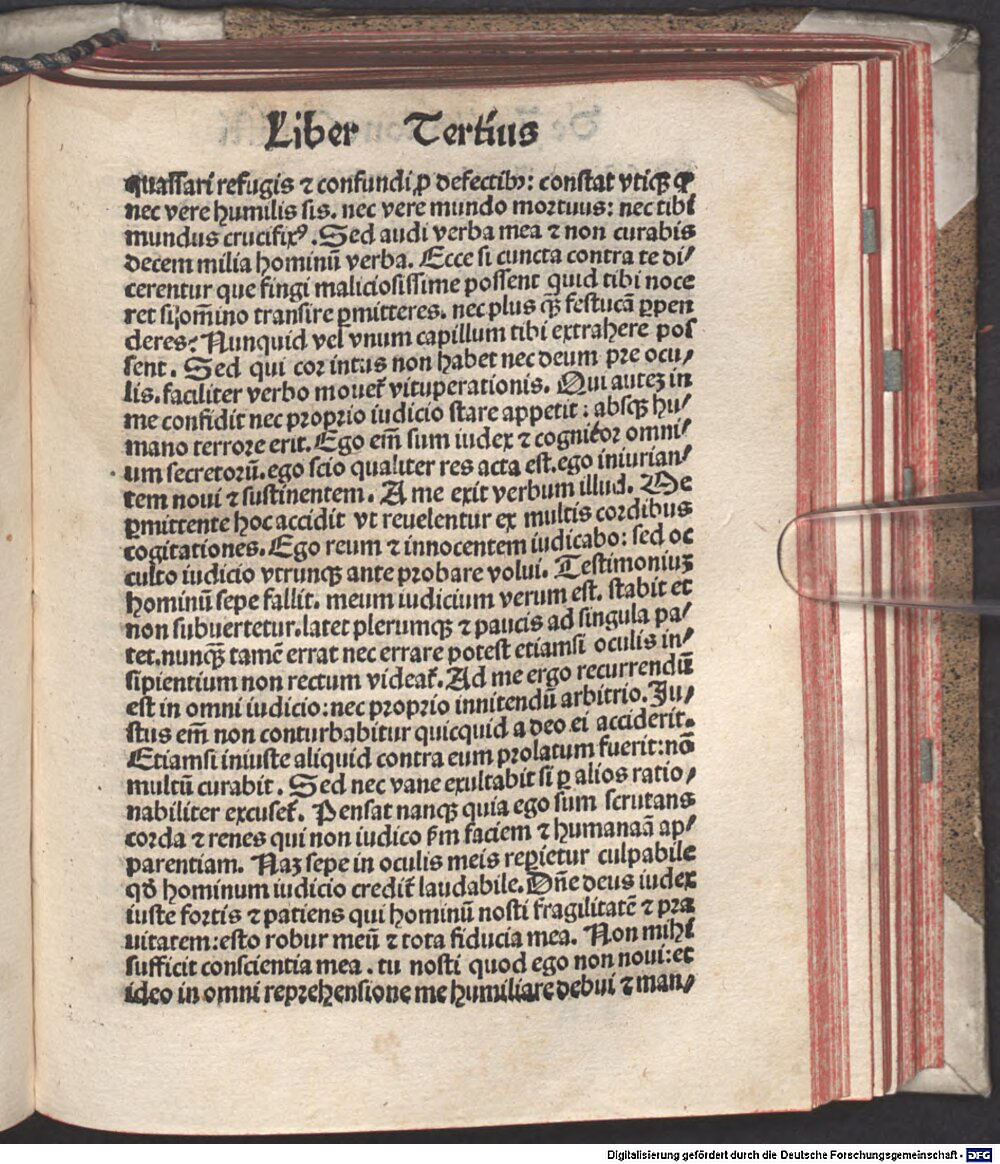 Liber Tertius
quassari refugis ⁊ confundi ꝓ defectibꝫ: constat vtiqꝫ ꝙ
nec vere humilis sis. nec vere mundo mortuus: nec tibi
mundus crucifixꝰ. Sed audi verba mea ⁊ non curabis
decem milia hominū verba. Ecce si cuncta contra te di⸗
cerentur que fingi maliciosissime possent quid tibi noce
ret si omīno transire ꝑmitteres. nec plus qꝫ festucā ꝑpen
deres? Nunquid vel vnum capillum tibi extrahere pos
sent. Sed qui cor intus non habet nec deum pre ocu⸗
lis. faciliter verbo mouet̄ vituperationis. Qui autez in
me confidit nec proprio iudicio stare appetit: absqꝫ hu⸗
mano terrore erit. Ego em̄ sum iudex ⁊ cognitor omni⸗
um secretorū. ego scio qualiter res acta est. ego iniurian⸗
tem noui ⁊ sustinentem. A me exit verbum illud. Me
ꝑmittente hoc accidit vt reuelentur ex multis cordibus
cogitationes. Ego reum ⁊ innocentem iudicabo: sed oc
culto iudicio vtrunqꝫ ante probare volui. Testimoniuz
hominū sepe fallit. meum iudicium verum est. stabit et
non subuertetur. latet plerumqꝫ ⁊ paucis ad singula pa⸗
tet. nunqꝫ̄ tamē errat nec errare potest etiamsi oculis in⸗
sipientium non rectum videat̄. Ad me ergo recurrendū
est in omni iudicio: nec proprio innitendū arbitrio. Ju⸗
stus em̄ non conturbabitur quicquid a deo ei acciderit.
Etiamsi iniuste aliquid contra eum prolatum fuerit: nō
multū curabit. Sed nec vane exultabit si ꝑ alios ratio⸗
nabiliter excuset̄. Pensat nanqꝫ quia ego sum scrutans
corda ⁊ renes qui non iudico ẜm faciem ⁊ humanaā ap⸗
parentiam. Naz sepe in oculis meis reꝑietur culpabile
qd̓ hominum iudicio credit̄ laudabile. Dn̄e deus iudex
iuste fortis ⁊ patiens qui hominū nosti fragilitatē ⁊ pra
uitatem: esto robur meū ⁊ tota fiducia mea. Non mihi
sufficit conscientia mea. tu nosti quod ego non noui: et
ideo in omni reprehensione me humiliare debui ⁊ man⸗
Digitalisierung gefördert durch die Deutsche Forschungsgemeinschaft - DFG